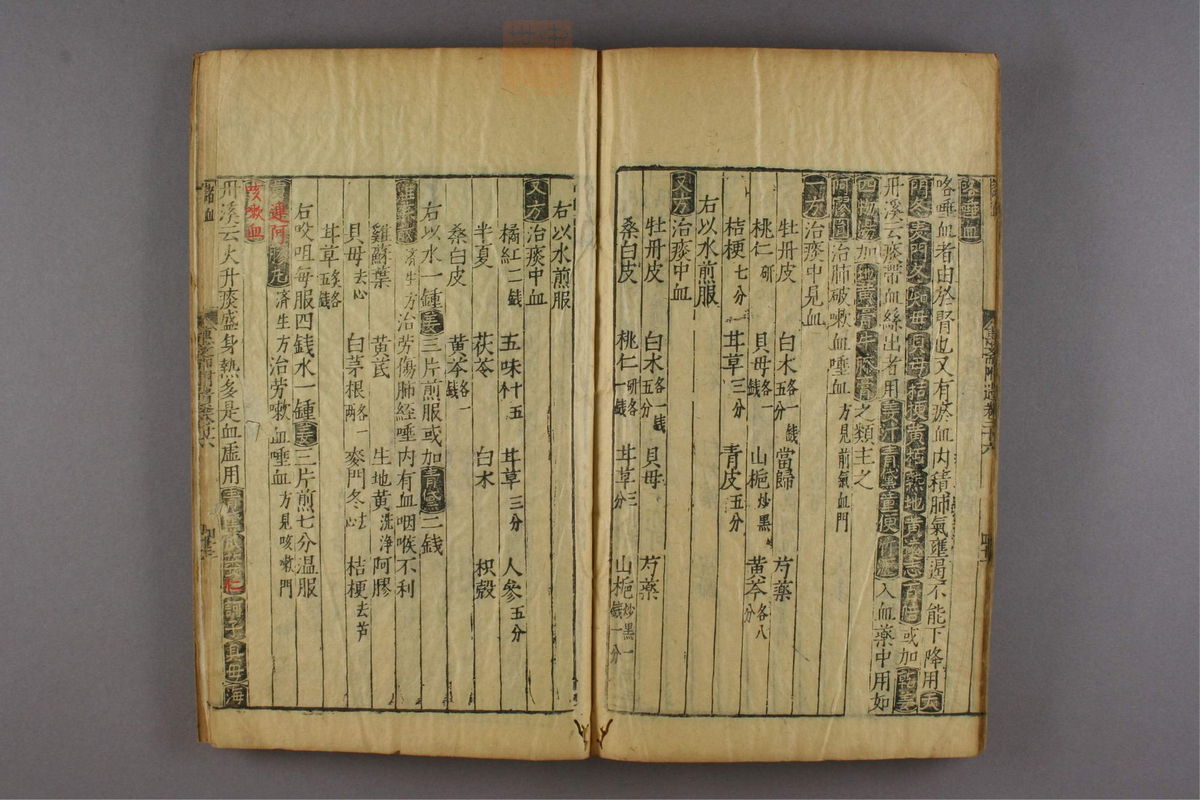 咯唾血
咯唾血者由於腎也又有瘀血內積肺氣壅遏不能下降用天
門冬麥門冬知母貝母桔梗黃栢熟地黃遠志或加乾薑
丹溪云痰帶血絲出者用姜汁青黛童便竹瀝入血藥中用如
四物湯加地黃膏牛膝膏之類主之
阿膠圓治肺破嗽血唾血方見前氣血門
一方治痰中見血
牡丹皮 白朮各一錢 當歸 芍藥
桃仁研 貝母各一錢 山梔炒黑 黃芩各八分
桔梗七分 甘草三分 青皮五分
右以水煎服
又方治痰中血
牡丹皮 白朮各一錢五分 貝母 芍藥
桑白皮 桃仁研各一錢 甘草三分 山梔炒黑一錢一分
右以水煎服
又方治痰中血
橘紅二錢 五味十五 甘草三分 人參五分
半夏 茯苓 白朮 枳殼
桑白皮 黃芩各一錢
右以水一鍾姜三片煎服或加青黛二錢
雞蘇散濟生方治勞傷肺經唾內有血咽喉不利
雞蘇葉 黃芪 生地黃洗淨 阿膠
貝母去心 白茅根各一兩 麥門冬去心 桔梗去芦
甘草炙各五錢
右㕮咀每服四錢水一鍾姜三片煎七分溫服
黃連阿膠丸濟生方治勞嗽血唾血方見咳嗽門
咳嗽血
丹溪云火升痰盛身熱多是血虛用青黛瓜蔞仁訶子貝母海